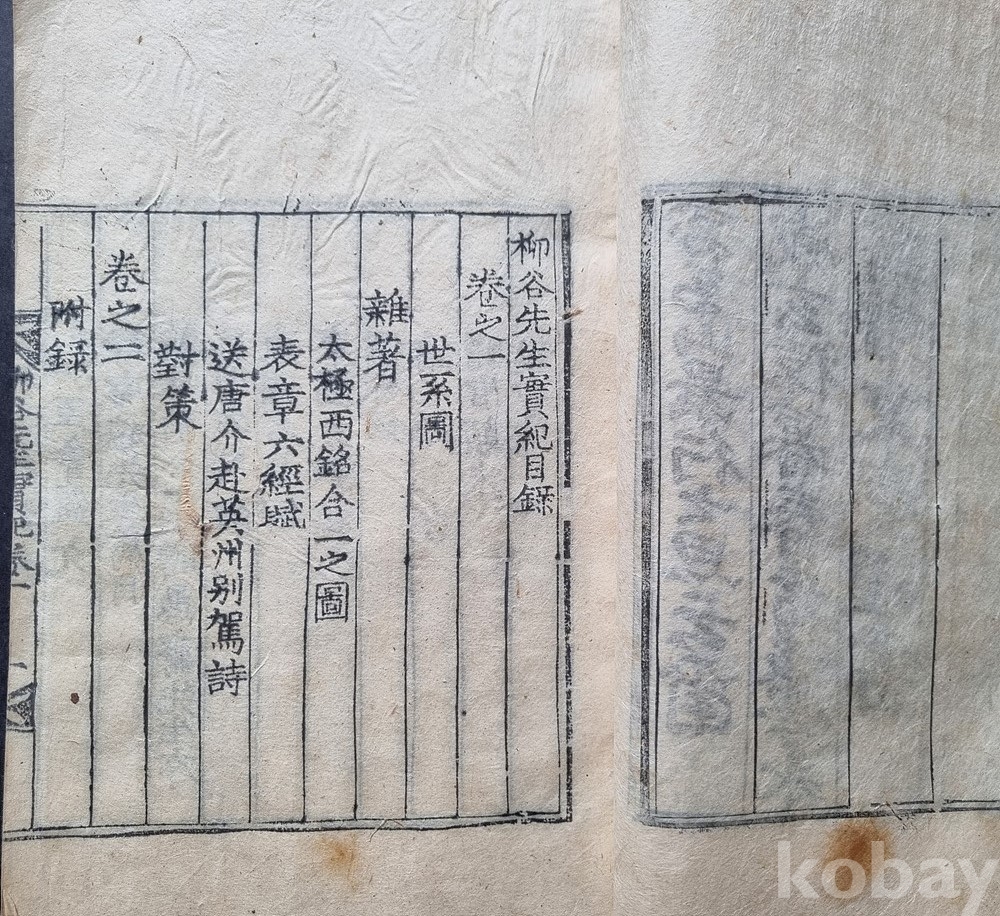 柳谷先生實紀目録
卷之一
世系圖
雜著
太極西銘合一之圖
表章六經賦
送唐介赴英州別駕詩
對策
卷之二
附録
柳谷先生實紀卷一
一
kobay